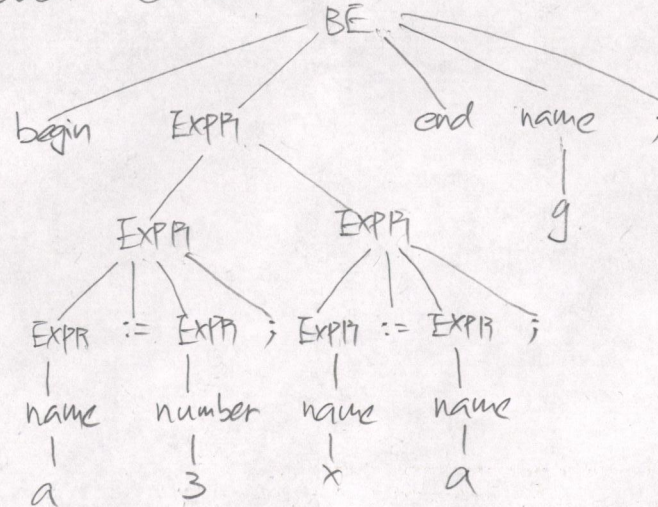 BE
begin EXPR end name ;
EXPR EXPR g
EXPR := EXPR ; EXPR := EXPR ;
name number name name
a 3 x a